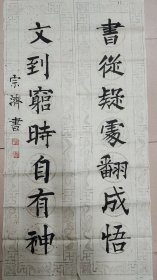 書從疑處翻成悟
文到窮時自有神
宗濟書